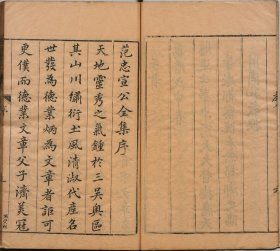 范忠宣公全集序
天地靈秀之氣鍾於三吳奧區
其山川綉衍土風清淑代產名
世發為德業炳為文章者詎可
更僕而德業文章父子濟美冠
序